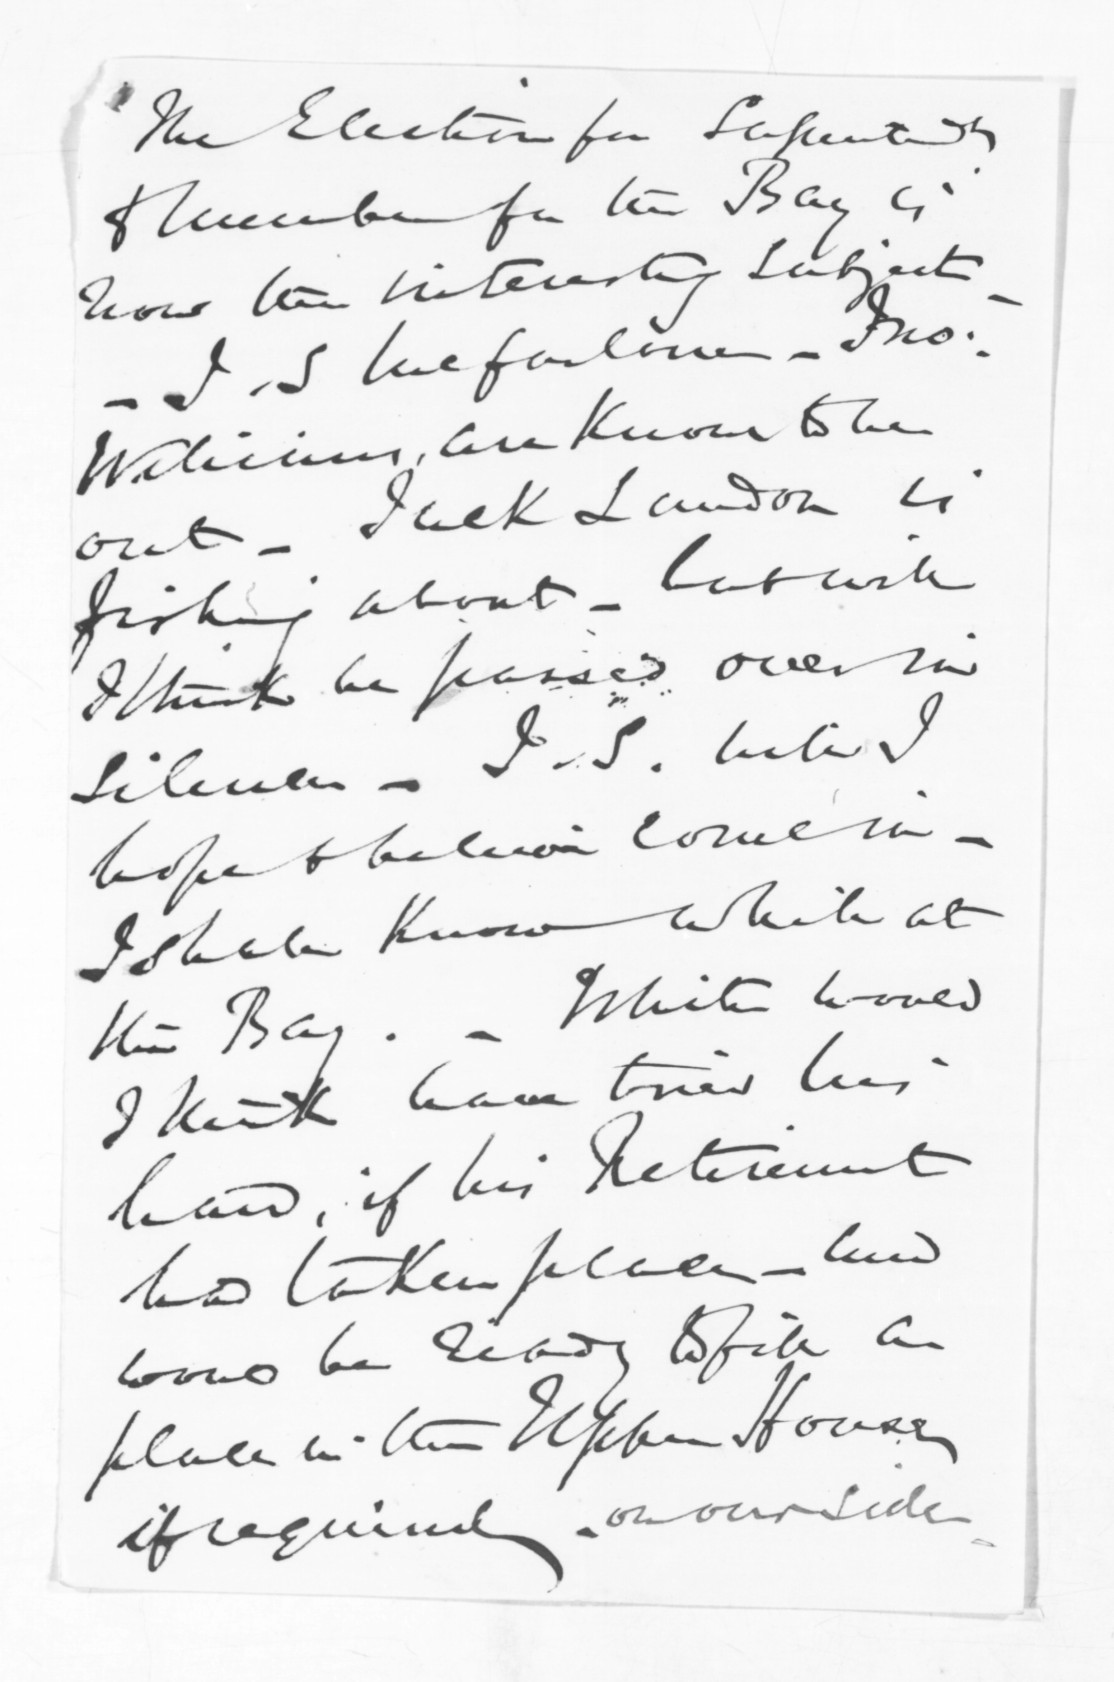 The Election for Superintdt
& Member for the Bay is
now the interesting subject -
- J. S Macfarlane - Jno:
Williams, are known to be
out - Jack Lundon is
fishing about - but will
I think be passed over in
silence - J. S. will I
hope & believe come in -
I shall know while at
the Bay. - White would
I think have tried his
hand, if his Retirement
had taken place - and
would be ready to fill a
place in the Upper House,
if required - on our side -